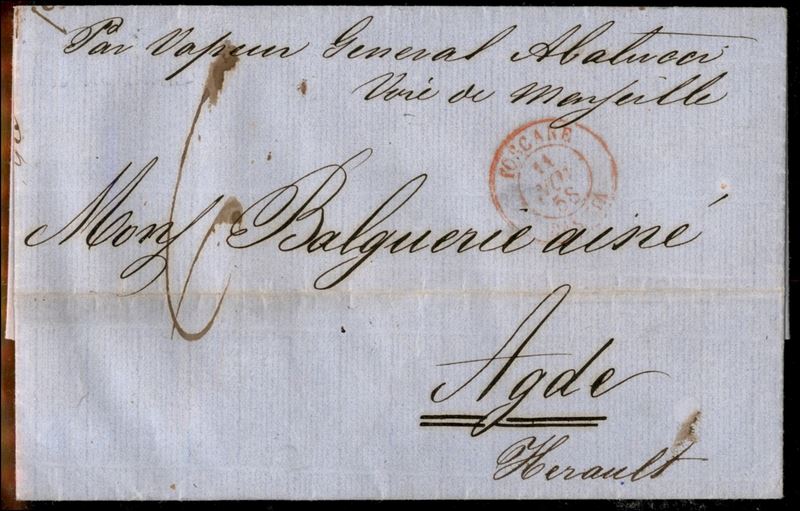 Par Vapeur General Abatucci
Voie de Marseille
TOSCANE
11
NOV
58
Mons Balguerie ainé
6
Agde
Herault